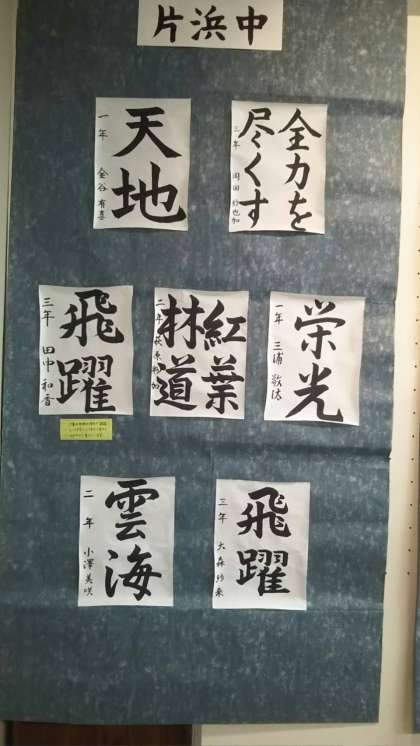 片浜中
全力を
尽くす
三年 岡田 紗也加
天地
一年 金谷 有喜
栄光
一年 三浦
紅葉
林道
二年 萩原
飛躍
三年 田中 和香
飛躍
三年 大森
雲海
二年 小澤 美咲